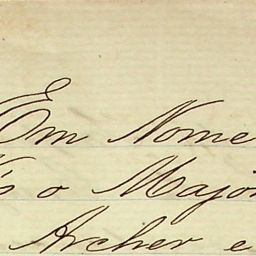 Em Nome
o Major
Archer e